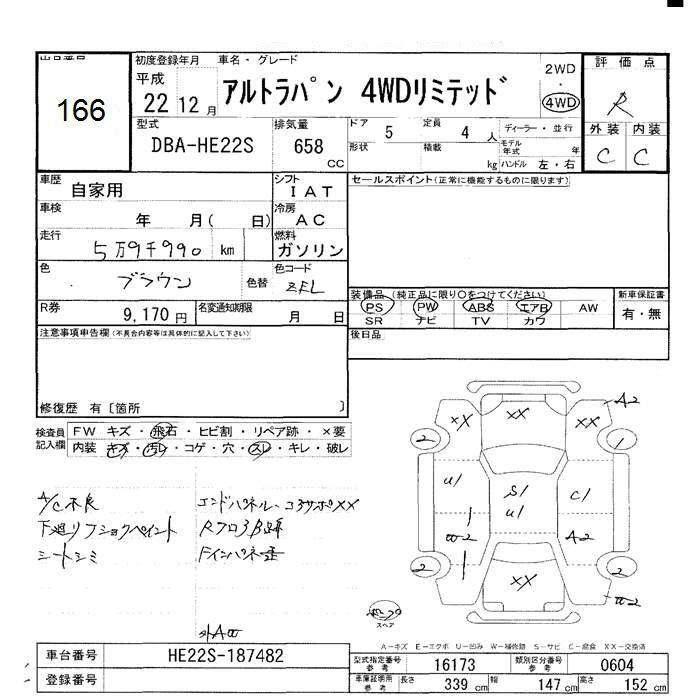 出品番号
166
初度登録年月
平成
22 12月
車名・グレード
アルトラパン 4WDリミテッド
2WD
4WD
評価点
R
外装 内装
C C
型式
DBA-HE22S
排気量
658
CC
ドア
5
定員
4 人
形状
積載
kg
ディーラー・並行
モデル年式 年
ハンドル 左・右
車歴
自家用
シフト
IAT
車検
年 月( 日)
冷房
AC
走行
5万9千990 km
燃料
ガソリン
色
ブラウン
色替
色コード
ZFL
R券
9,170円
名変通知期限
月 日
セールスポイント(正常に機能するものに限ります)
装備品(純正品に限り〇をつけてください)
PS PW ABS エアB AW
SR ナビ TV カワ
新車保証書
有・無
後日品
注意事項申告欄(不具合内容等は具体的に記入して下さい)
修復歴 有〔箇所 〕
検査員記入欄
FW キズ・飛石・ヒビ割・リペア跡・×要
内装 キズ・汚レ・コゲ・穴・スレ・キレ・破レ
A/C不良
下廻リフショックペイント
シートシミ
エンドパネル・コアサポXX
XX XX XX A2
2 1
U1 S1 U1 C1
W2 A2
2 2
XX W2
スペア
A-キズ E-エクボ U-凹み W-補修跡 S-サビ C-腐食 XX-交換済
車台番号
HE22S-187482
登録番号
型式指定番号参考
16173
類別区分番号参考
0604
車庫証明用参考
長さ 339 cm
幅 147 cm
高さ 152 cm